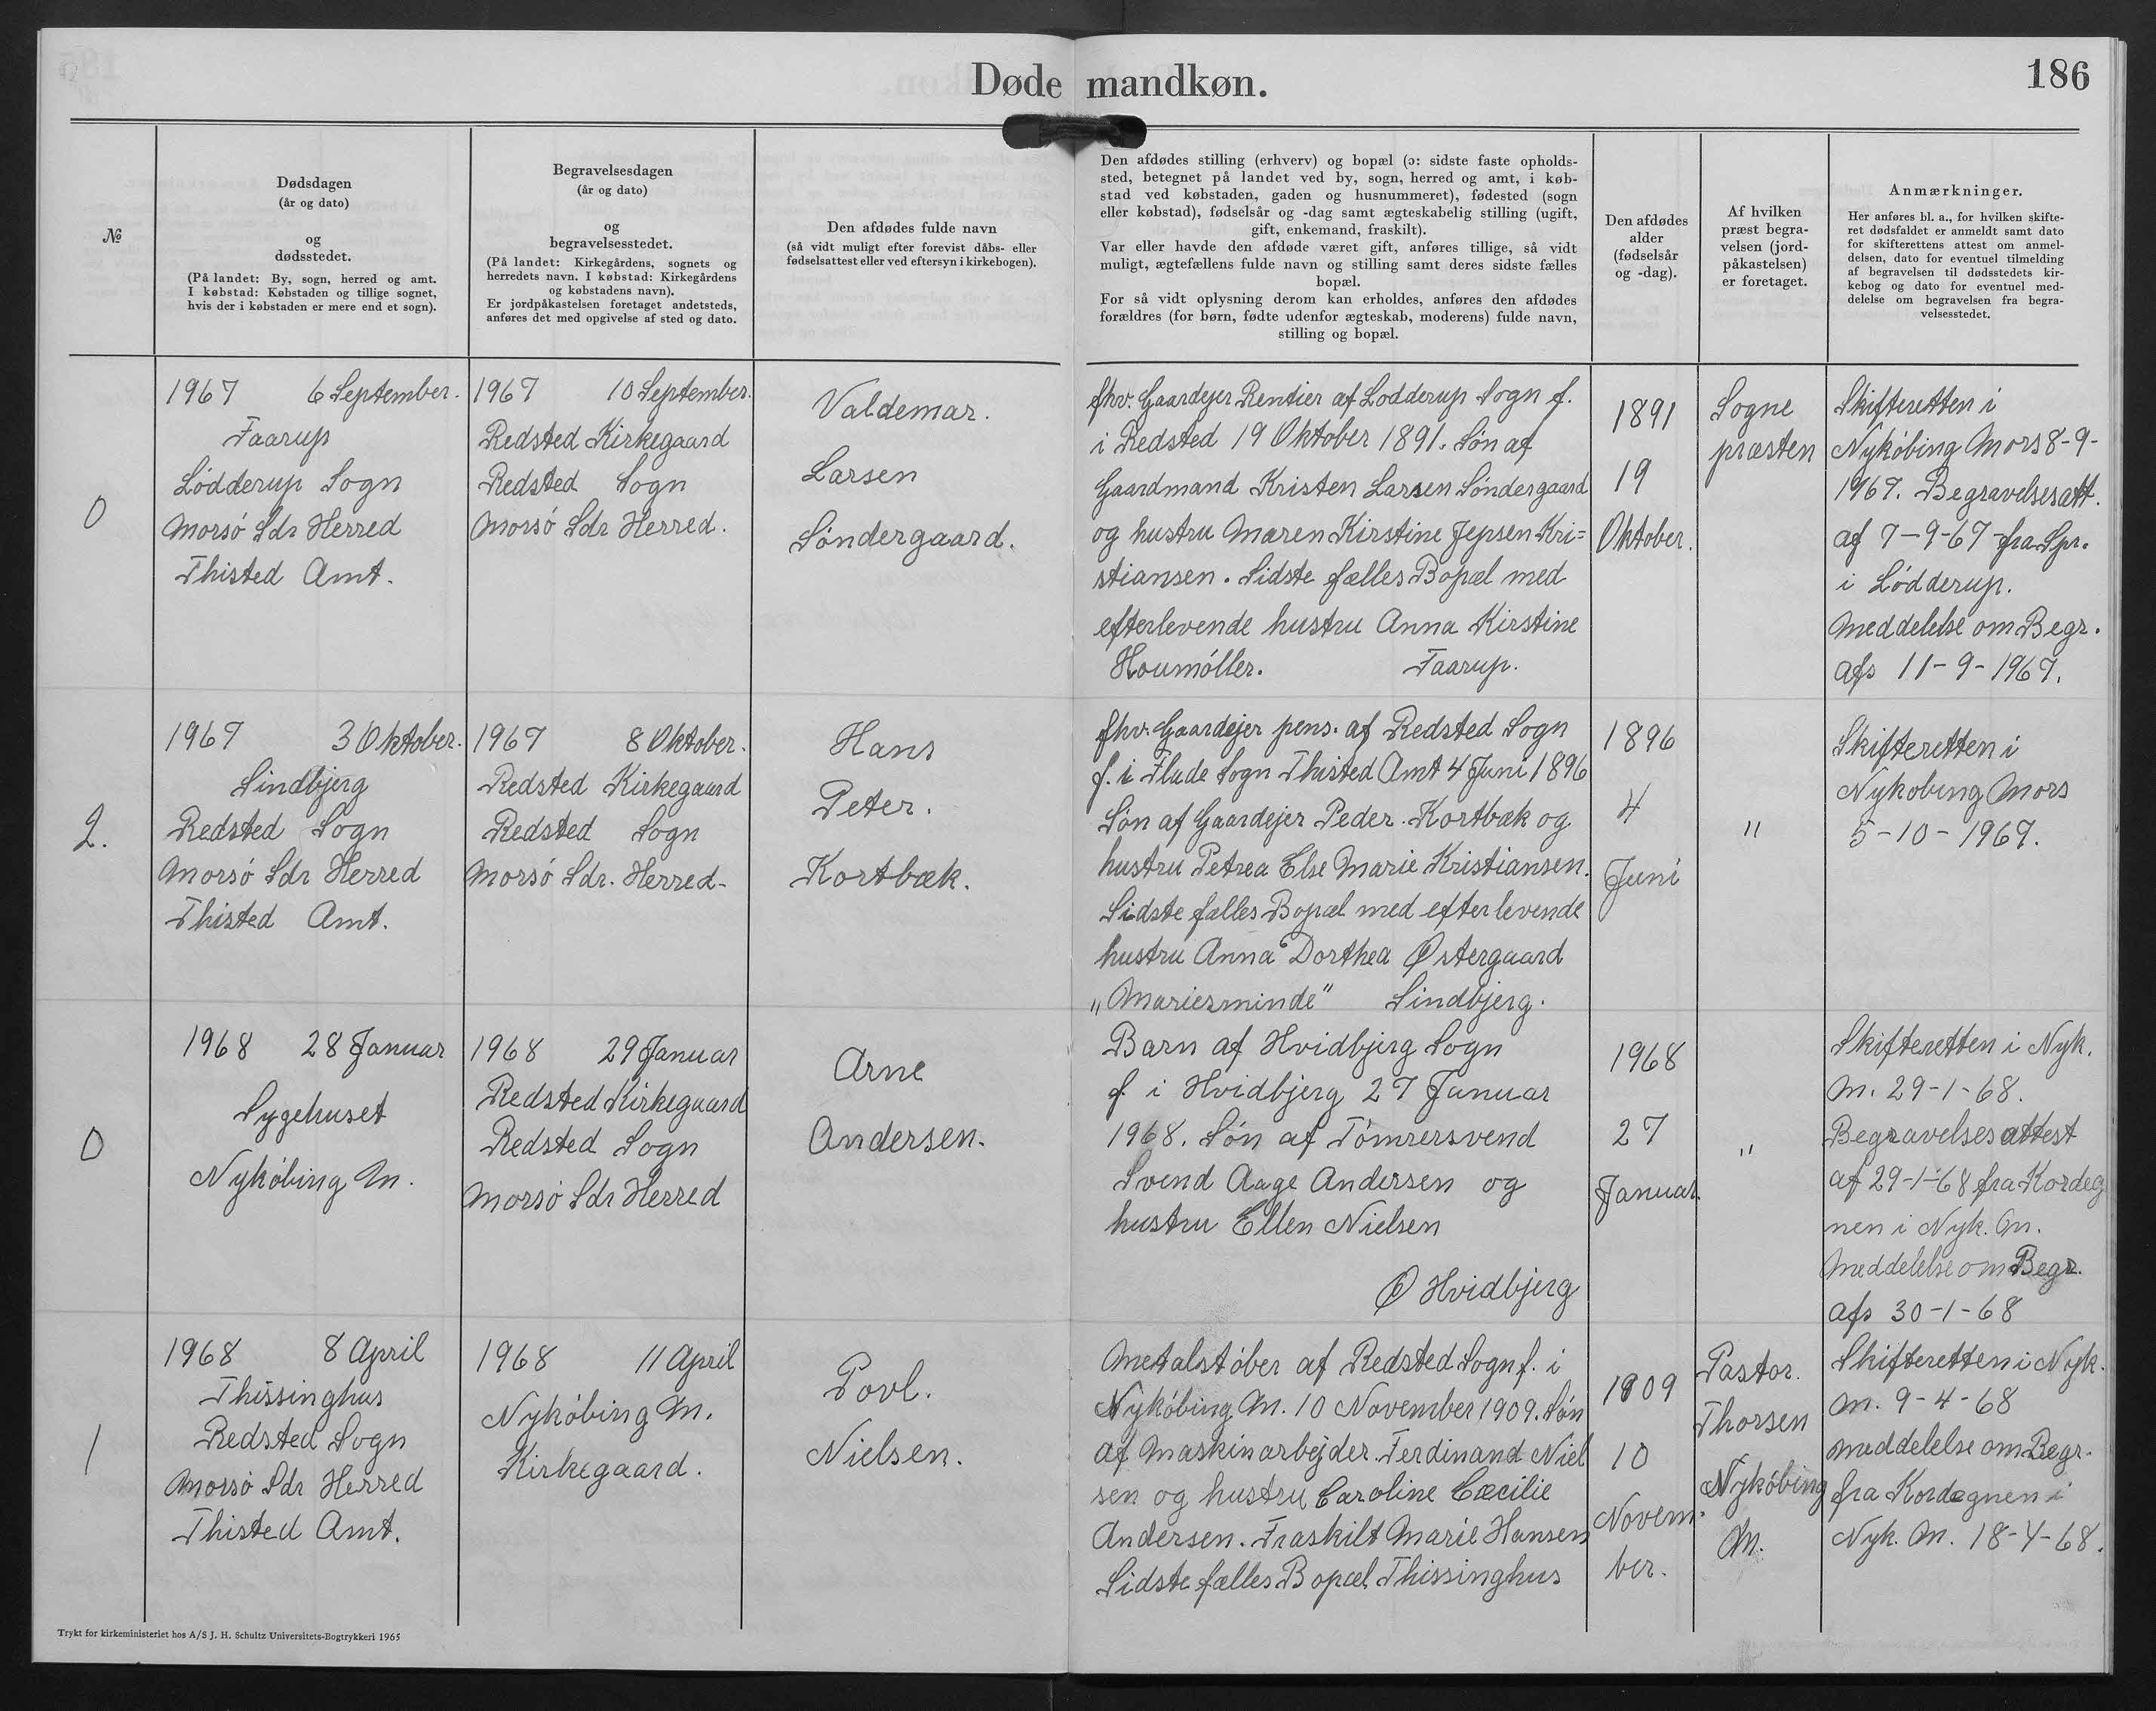 Døde mandkøn.
186
№
Dødsdagen
(år og dato)
og
dødsstedet.
(På landet: By, sogn, herred og amt.
I købstad: Købstaden og tillige sognet,
hvis der i købstaden er mere end et sogn).
Begravelsesdagen
(år og dato)
og
begravelsesstedet.
(På landet: Kirkegårdens, sognets og
herredets navn. I købstad: Kirkegårdens
og købstadens navn).
Er jordpåkastelsen foretaget andetsteds,
anføres det med opgivelse af sted og dato.
Den afdødes fulde navn
(så vidt muligt efter forevist dåbs- eller
fødselsattest eller ved eftersyn i kirkebogen).
Den afdødes stilling (erhverv) og bopæl (ɔ: sidste faste opholds-
sted, betegnet på landet ved by, sogn, herred og amt, i køb-
stad ved købstaden, gaden og husnummeret), fødested (sogn
eller købstad), fødselsår og -dag samt ægteskabelig stilling (ugift,
gift, enkemand, fraskilt).
Var eller havde den afdøde været gift, anføres tillige, så vidt
muligt, ægtefællens fulde navn og stilling samt deres sidste fælles
bopæl.
For så vidt oplysning derom kan erholdes, anføres den afdødes
forældres (for børn, fødte udenfor ægteskab, moderens) fulde navn,
stilling og bopæl.
Den afdødes
alder
(fødselsår
og -dag).
Af hvilken
præst begra-
velsen (jord-
påkastelsen)
er foretaget.
Anmærkninger.
Her anføres bl. a., for hvilken skifte-
ret dødsfaldet er anmeldt samt dato
for skifterettens attest om anmel-
delsen, dato for eventuel tilmelding
af begravelsen til dødsstedets kir-
kebog og dato for eventuel med-
delelse om begravelsen fra begra-
velsesstedet.
0
1967 6 September.
Faarup
Lödderup Sogn
Morsö Sdr Herred
Thisted Amt.
1967 10 September.
Redsted Kirkegaard
Redsted Sogn
Morsö Sdr Herred.
Valdemar.
Larsen
Söndergaard.
fhv. Gaardejer Rentier af Lodderup Sogn f.
i Redsted 19 Oktober 1891. Søn af
Gaardmand Kristen Larsen Söndergaard
og hustru Maren Kirstine Jepsen Kri=
stiansen. Sidste fælles Bopæl med
efterlevende hustru Anna Kirstine
Houmöller. Faarup.
1891
19
Oktober.
Sogne
præsten
Skifteretten i
Nyköbing Mors 8-9-
1967. Begravelsesatt.
af 7-9-67 fra Spr.
i Lödderup.
Meddelelse om Begr.
afs 11-9-1967.
2.
1967 3 Oktober.
Sindbjerg
Redsted Sogn
Morsö Sdr Herred
Thisted Amt.
1967 8 Oktober.
Redsted Kirkegaard
Redsted Sogn
Morsö Sdr. Herred-
Hans
Peter.
Kortbæk.
fhv. Gaardejer pens. af Redsted Sogn
f. i Flade Sogn Thisted Amt 4 Juni 1896
Søn af Gaardejer Peder Kortbæk og
hustru Petrea Else Marie Kristiansen.
Sidste fælles Bopæl med efterlevende
hustru Anna Dorthea Østergaard
„Mariesminde" Sindbjerg.
1896
4
Juni
"
Skifteretten i
Nykobing Mors
5-10-1967.
0
1968 28 Januar
Sygehuset
Nyköbing M.
1968 29 Januar
Redsted Kirkegaard
Redsted Sogn
Morsö Sdr Herred
Arne
Andersen.
Barn af Hvidbjerg Sogn
f. i Hvidbjerg 27 Januar
1968. Søn af Tömrersvend
Svend Aage Andersen og
hustru Ellen Nielsen
Ø Hvidbjerg
1968
27
Januar.
"
Skifteretten i Nyk.
M. 29-1-68.
Begravelsesattest
af 29-1-68 fra Kordeg
nen i Nyk. M.
Meddelelse om Begr.
afs 30-1-68
1
1968 8 April
Thissinghus
Redsted Sogn
Morsö Sdr Herred
Thisted Amt.
1968 11 April
Nyköbing M.
Kirkegaard.
Povl.
Nielsen.
Metalstöber af Redsted Sogn f. i
Nyköbing M. 10 November 1909. Søn
af Maskinarbejder Ferdinand Niel
sen og hustru Caroline Cæcilie
Andersen. Fraskilt Marie Hansen
Sidste fælles Bopæl Thissinghus
1909
10
Novem.
ber.
Pastor.
Thorsen
Nyköbing
M.
Skifteretten i Nyk.
M. 9-4-68
Meddelelse om Begr.
fra Kordegnen i
Nyk. M. 18-4-68.
Trykt for kirkeministeriet hos A/S J. H. Schultz Universitets-Bogtrykkeri 1965